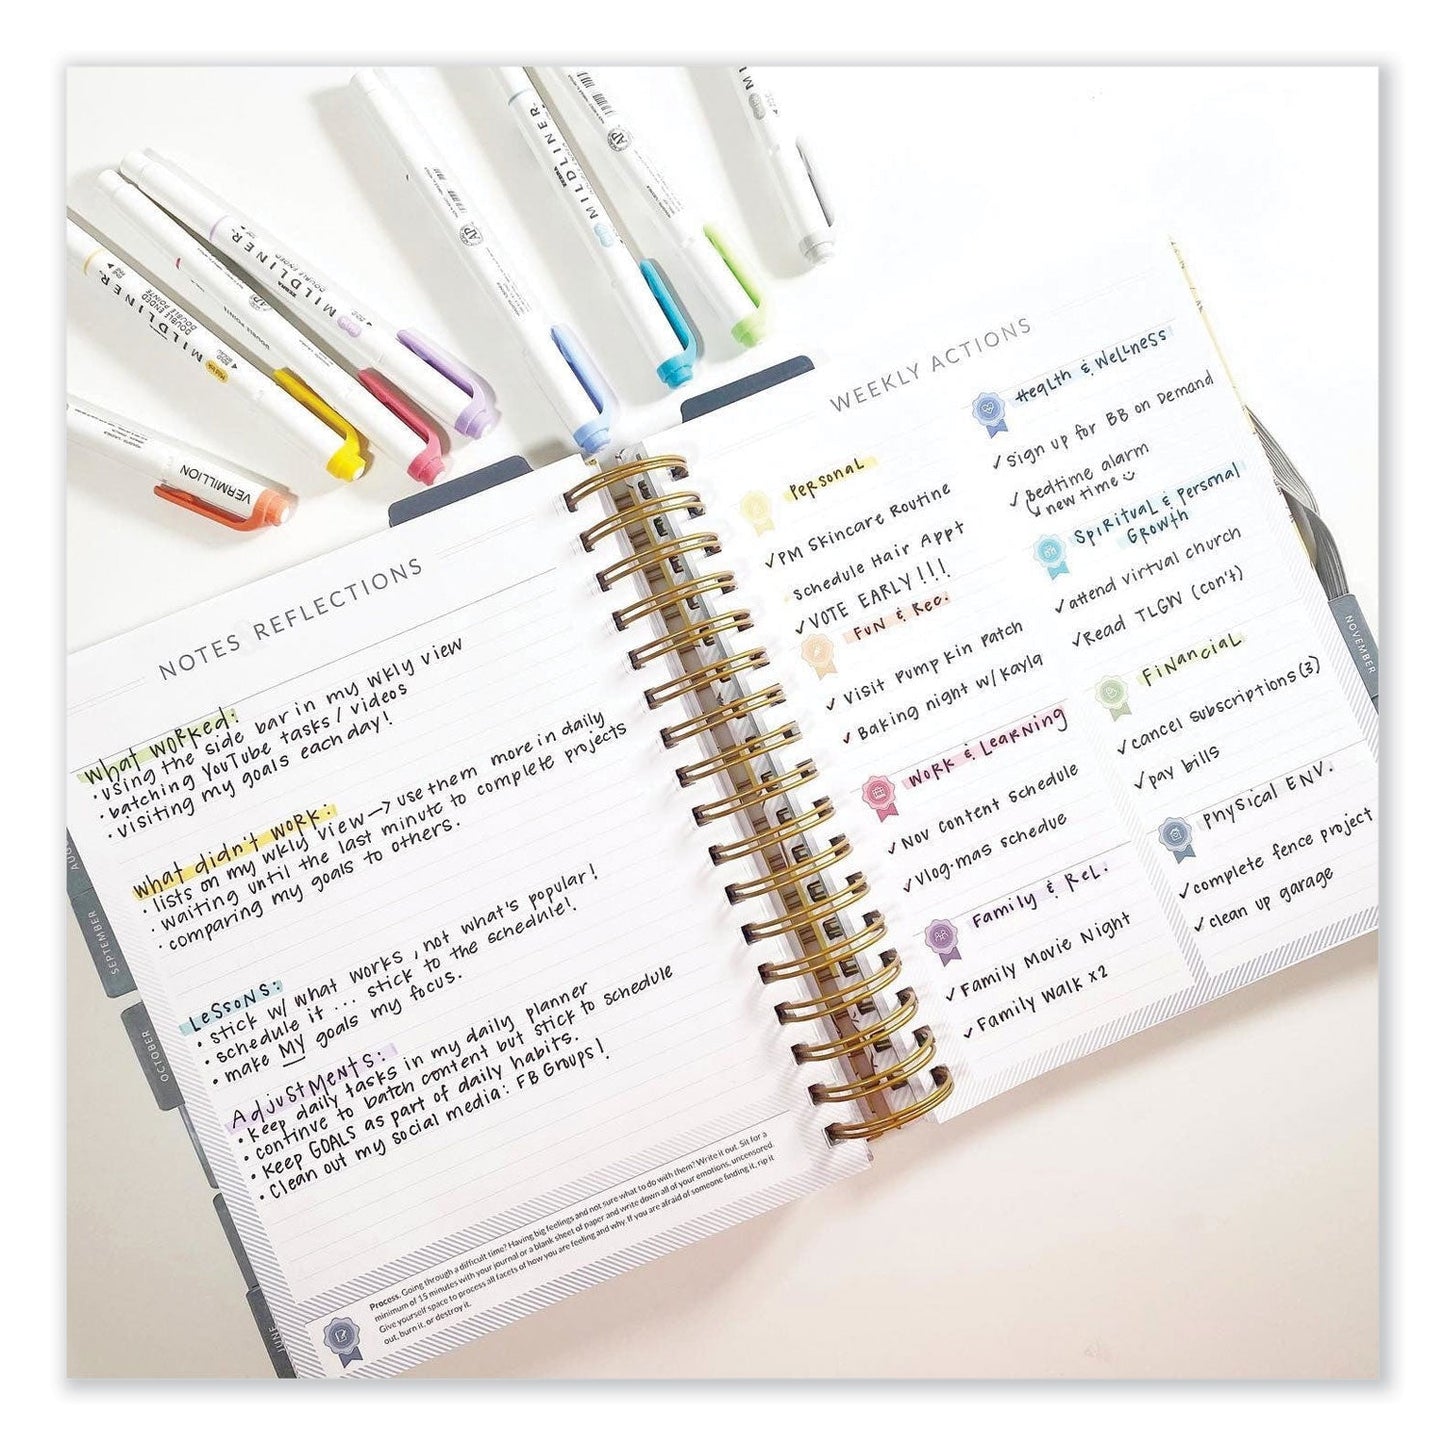 MILDLINER
ZEBRA
MILDLINER
DOUBLE ENDED
ZEBRA
MILDLINER
DOUBLE ENDED
DOUBLE POINTE
VERMILLION
NOTES REFLECTIONS
What worked:
• using the side bar in my wkly view
• batching YouTube tasks / videos
• visiting my goals each day!
What didn't work:
• lists on my wkly view → use them more in daily
• waiting until the last minute to complete projects
• comparing my goals to others.
Lessons:
• stick w/ what works, not what's popular!
• schedule it... stick to the schedule!
• make MY goals my focus.
Adjustments:
• keep daily tasks in my daily planner
• continue to batch content but stick to schedule
• keep GOALS as part of daily habits.
• clean out my social media: FB Groups!
Process. Going through a difficult time? Having big feelings and not sure what to do with them? Write it out. Sit for a
minimum of 15 minutes with your journal or a blank sheet of paper and write down all of your emotions, uncensored.
Give yourself space to process all facets of how you are feeling and why. If you are afraid of someone finding it, rip it
out, burn it, or destroy it.
SEPTEMBER
OCTOBER
JUNE
WEEKLY ACTIONS
Personal
✓ PM Skincare Routine
Schedule Hair Appt
✓ VOTE EARLY!!!
Fun & Rec.
✓ Visit Pumpkin Patch
✓ Baking night w/ Kayla
Work & Learning
✓ Nov content schedule
✓ Vlog-mas schedue
Family & Rel.
✓ Family Movie Night
✓ Family Walk x2
Health & Wellness
✓ sign up for BB on Demand
✓ Bedtime alarm
↳ new time
Spiritual & Personal
Growth
✓ attend virtual church
✓ Read TLGW (con't)
Financial
✓ cancel subscriptions (3)
✓ pay bills
Physical ENV.
✓ complete fence project
✓ clean up garage
NOVEMBER